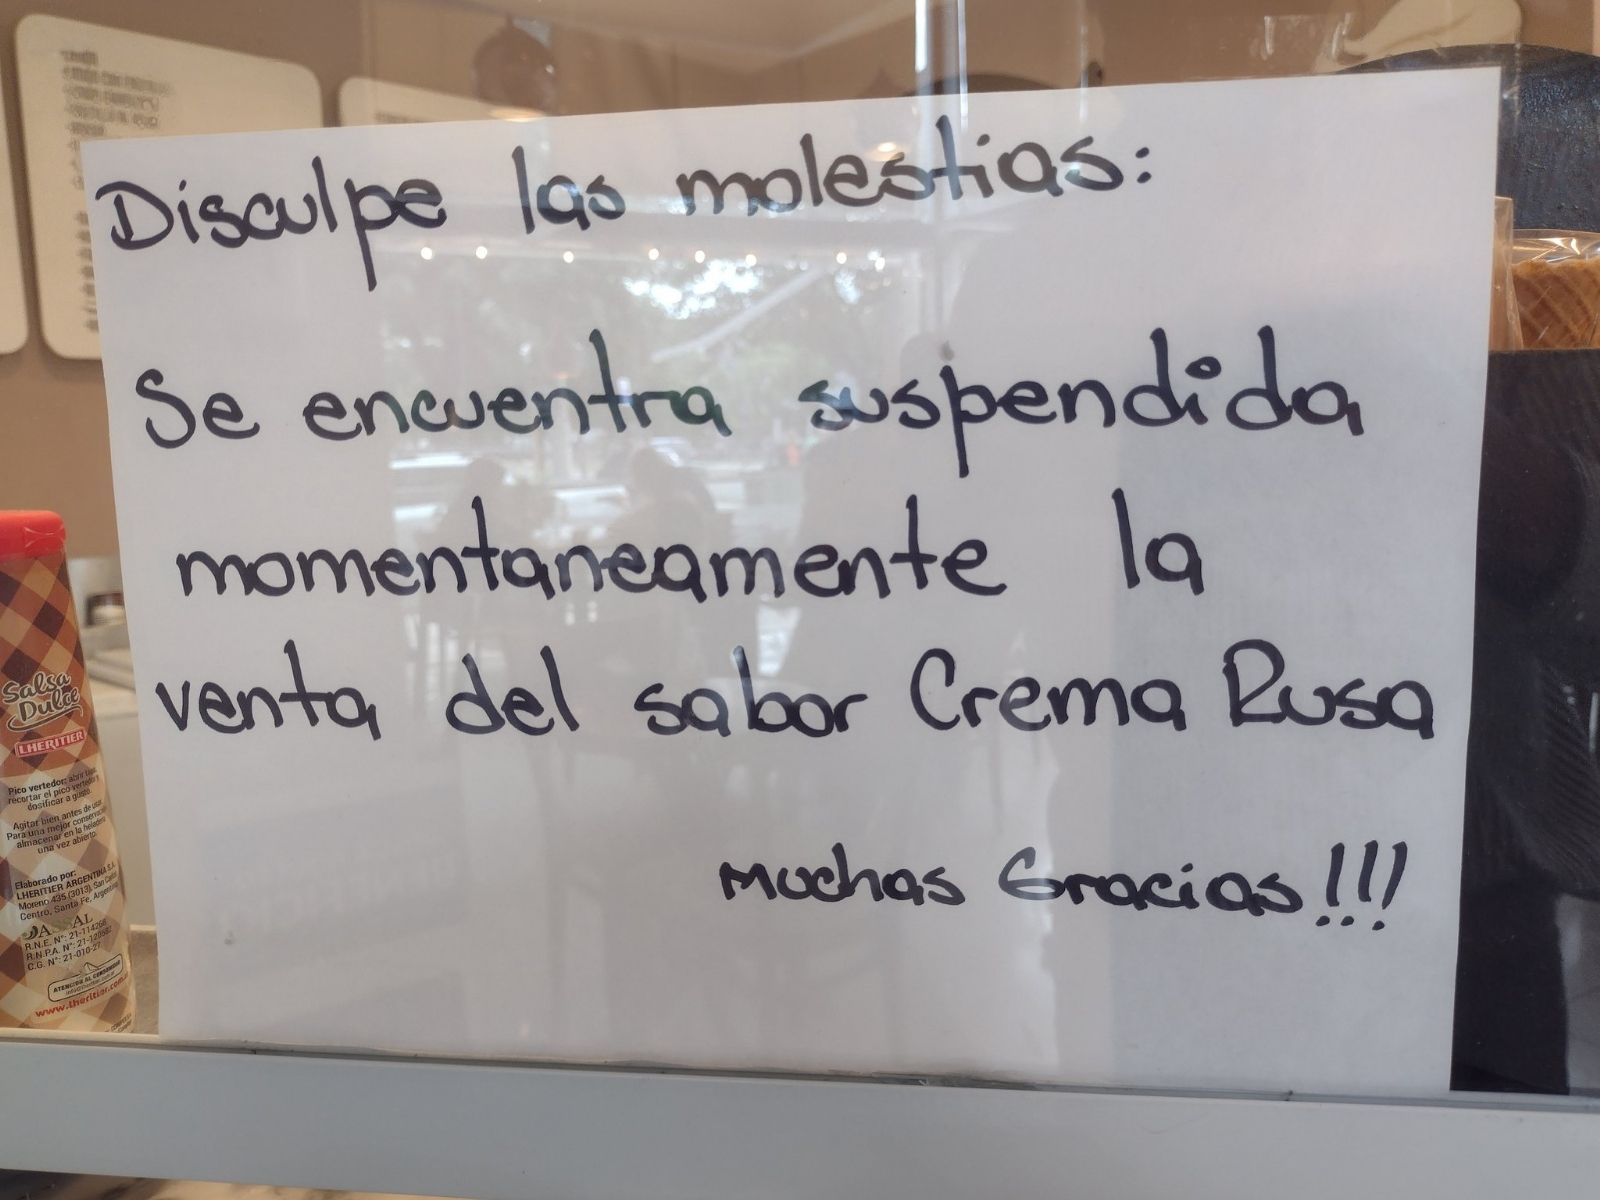 Disculpe las molestias:
Se encuentra suspendida
momentaneamente la
venta del sabor Crema Rusa
Muchas Gracias!!!
Salsa
Dulce
LHERITIER
Pico vertedor: abrir tapa,
recortar el pico vertedor y
dosificar a gusto.
Agitar bien antes de usar.
Para una mejor conservación
almacenar en la heladera
una vez abierto.
Elaborado por:
LHERITIER ARGENTINA S.A.
Moreno 435 (3013), San Carlos
Centro, Santa Fe, Argentina
ASSAL
R.N.E. N°: 21-114268
R.N.P.A. N°:
C.G. N°: 21-010-27
ATENCIÓN AL CONSUMIDOR
www.lheritier.com